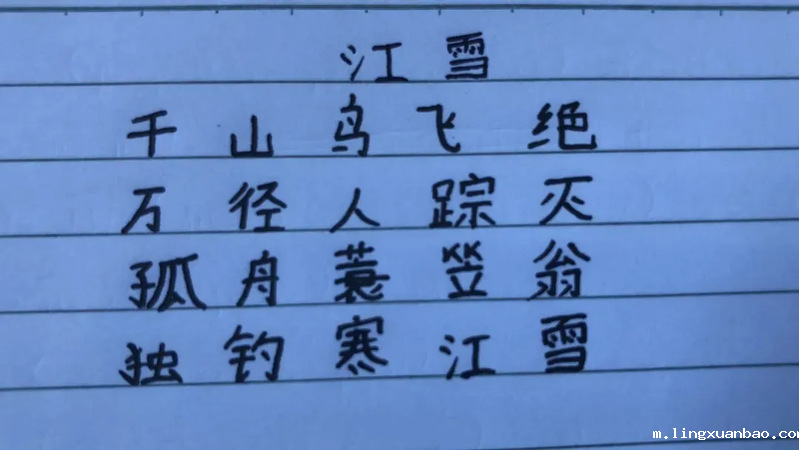 江雪
千山鸟飞绝
万径人踪灭
孤舟蓑笠翁
独钓寒江雪
m.lingxuanbao.com